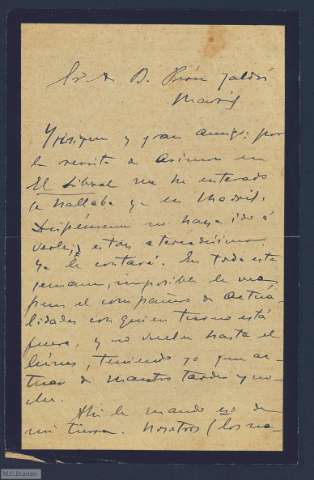 Sr. D. B. Pérez Galdós
Madrid
y gran amigo: por
la revista de Azorín en
El Liberal me he enterado
se hallaba ya en Madrid.
Dispénseme no haya ido á
verle; estoy atareadísimo.
Ya le contaré. En toda esta
semana, imposible le vea,
pues el compañero de Actua-
lidades con quien turno está
fuera, y no vuelve hasta el
lúnes, teniendo yo que ac-
tuar de maestro tarde y no-
che.
Ahí le mando eso de
mi tierra. Nosotros (los na-